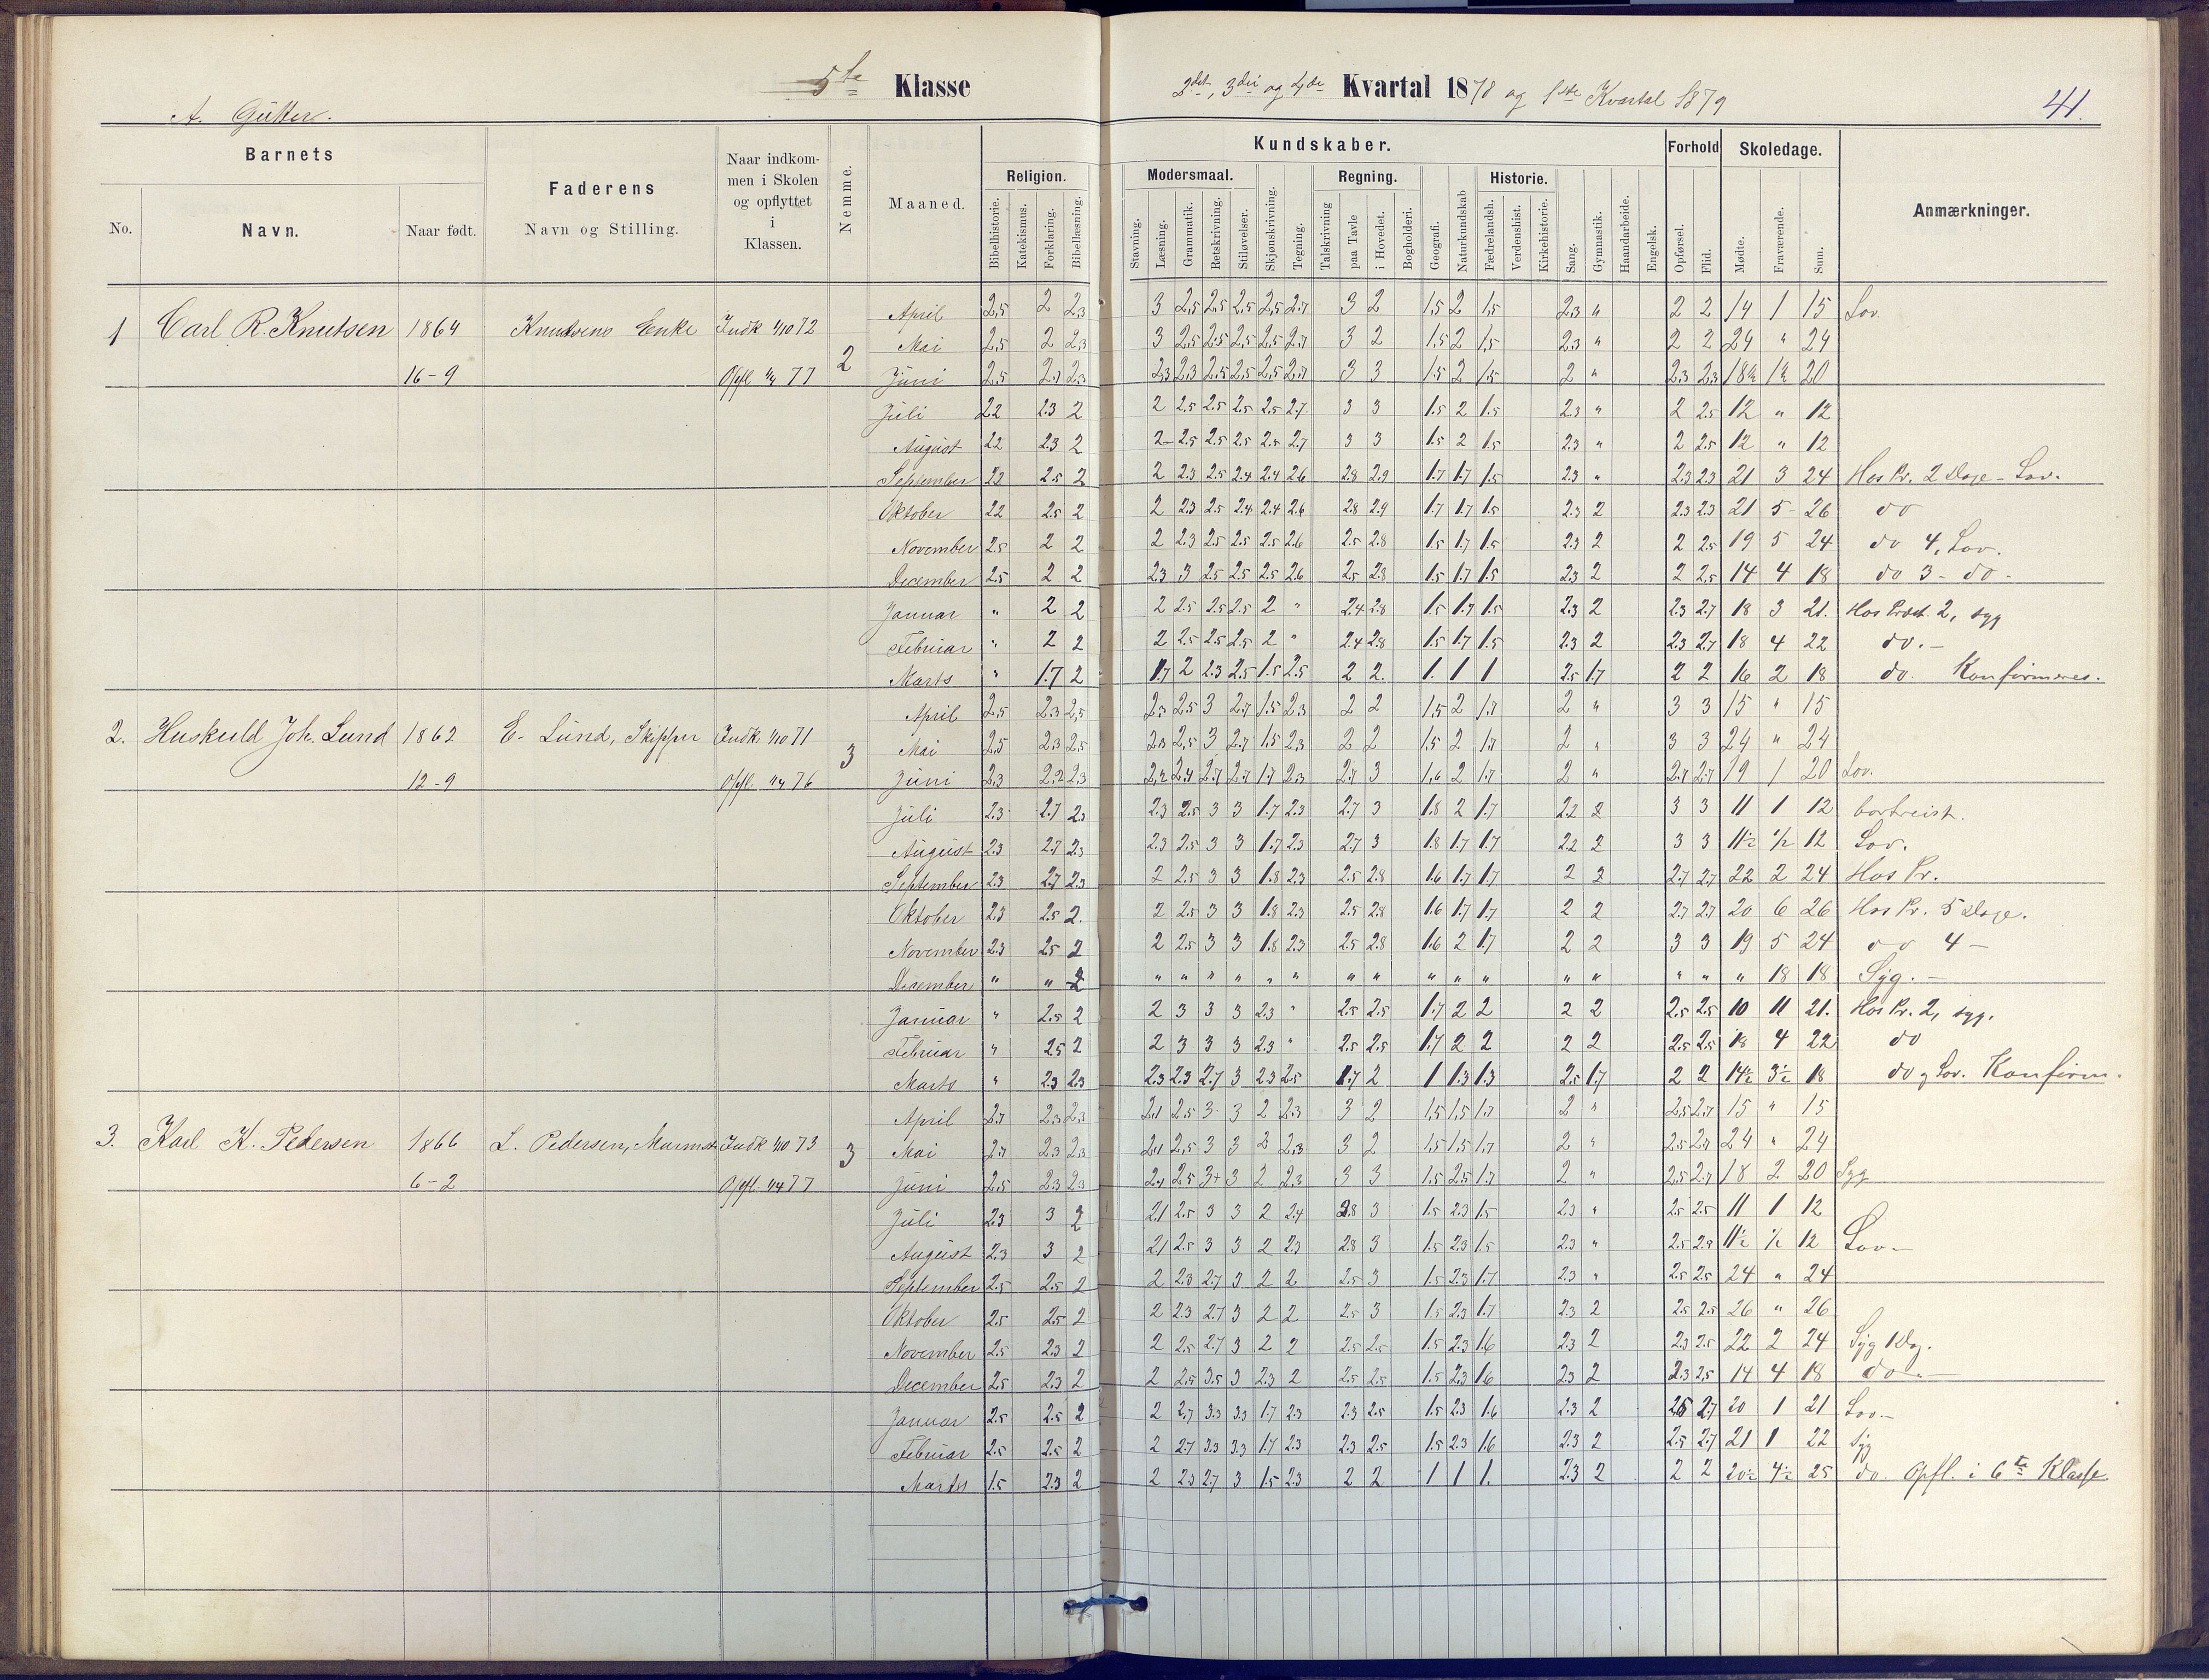 5te Klasse
2det, 3die og 4de Kvartal 1878 og 1ste Kvartal 1879
41.
A. Gutter.
Barnets
Faderens
Navn og Stilling.
Naar indkom-
men i Skolen
og opflyttet
i
Klassen.
Nemme.
Maaned.
Kundskaber.
Forhold
Skoledage.
Anmærkninger.
No.
Navn.
Naar født.
Religion.
Modersmaal.
Regning.
Historie.
Bibelhistorie.
Katekismus.
Forklaring.
Bibellæsning.
Stavning.
Læsning.
Grammatik.
Retskrivning.
Stiløvelser.
Skjønskrivning.
Tegning.
Talskrivning
paa Tavle
i Hovedet.
Bogholderi.
Geografi.
Naturkundskab
Fædrelandsh.
Verdenshist.
Kirkehistorie.
Sang.
Gymnastik.
Haandarbeide.
Engelsk.
Opførsel.
Flid.
Mødte.
Fraværende.
Sum.
1 Carl R. Knutsen 1864 16-9 Knutsens Enke Indk 1/10 72 Opfl 1/4 77 2
April 2,5 2 2,3 3 2,5 2,5 2,5 2,5 2,7 3 2 1,5 2 1,5 2,3 " 2 2 14 1 15 Lov.
Mai 2,5 2 2,3 3 2,5 2,5 2,5 2,5 2,7 3 2 1,5 2 1,5 2,3 " 2 2 24 " 24
Juni 2,5 2,7 2,3 2,3 2,3 2,5 2,5 2,5 2,7 3 3 1,5 2 1,5 2 " 2,3 2,3 18½ 1½ 20
Juli 2.2 2.3 2 2 2.5 2.5 2.5 2.5 2.7 3 3 1.5 2 1.5 2.3 " 2 2.5 12 " 12
August 2.2 2.3 2 2 2.5 2.5 2.5 2.5 2.7 3 3 1.5 2 1.5 2.3 " 2 2.5 12 " 12
September 2.2 2.5 2 2 2.3 2.5 2.4 2.4 2.6 2.8 2.9 1.7 1.7 1.5 2.3 " 2.3 2.3 21 3 24 Hos Pr. 2 Dage - Lov.
Oktober 2.2 2.5 2 2 2.3 2.5 2.4 2.4 2.6 2.8 2.9 1.7 1.7 1.5 2.3 2 2.3 2.3 21 5 26 do
November 2.5 2 2 2 2.3 2.5 2.5 2.5 2.6 2.5 2.8 1.5 1.7 1.5 2.3 2 2 2.5 19 5 24 do 4, Lov.
December 2.5 2 2 2.3 3 2.5 2.5 2.5 2.6 2.5 2.8 1.5 1.7 1.5 2.3 2 2 2.5 14 4 18 do 3 - do -
Januar " 2 2 2 2.5 2.5 2.5 2 " 2.4 2.8 1.5 1.7 1.5 2.3 2 2.3 2.7 18 3 21. Hos Præst. 2, syg
Februar " 2 2 2 2.5 2.5 2.5 2 " 2.4 2.8 1.5 1.7 1.5 2.3 2 2.3 2.7 18 4 22 do. -
Marts " 1.7 2 1.7 2 2.3 2.5 1.5 2.5 2 2. 1. 1 1 2.5 1.7 2 2 16 2 18 do. Konfirmeres.
2. Huskuld Joh. Lund 1862 12-9 E. Lund, Skipper Indk 1/10 71 Opfl. 1/4 76 3
April 2,5 2,3 2,5 2,3 2,5 3 2,7 1,5 2,3 2 2 1,5 2 1,7 2 " 3 3 15 " 15
Mai 2,5 2,3 2,5 2,3 2,5 3 2,7 1,5 2,3 2 2 1,5 2 1,7 2 " 3 3 24 " 24
Juni 2,3 2,2 2,3 2,2 2,7 2,7 2,7 1,7 2,3 2,7 3 1,6 2 1,7 2 " 2,7 2,7 19 1 20 Lov.
Juli 2.3 2.7 2.3 2.3 2.5 3 3 1.7 2.3 2.7 3 1.8 2 1.7 2.2 2 3 3 11 1 12 bortreist.
August 2.3 2.7 2.3 2.3 2.5 3 3 1.7 2.3 2.7 3 1.8 1.7 1.7 2.2 2 3 3 11½ ½ 12 Lov.
September 2.3 2.7 2.3 2 2.5 3 3 1.8 2.3 2.5 2.8 1.6 1.7 1.7 2 2 2.7 2.7 22 2 24 Hos Pr.
Oktober 2.3 2.5 2. 2 2.5 3 3 1.8 2.3 2.5 2.8 1.6 1.7 1.7 2 2 2.7 2.7 20 6 26 Hos Pr. 5 Dage.
November 2.3 2.5 2 2 2.5 3 3 1.8 2.3 2.5 2.8 1.6 2 1.7 2 2 3 3 19 5 24 do 4 -
December " " 2 " " " " " " " " " " " " " " " " 18 18 Syg. -
Januar " 2.5 2 2 3 3 3 2.3 " 2.5 2.5 1.7 2 2 2 2 2.5 2.5 10 11 21. Hos Pr. 2, syg.
Februar " 2.5 2 2 3 3 3 2.3 " 2.5 2.5 1.7 2 2 2 2 2.5 2.5 18 4 22 do
Marts " 2.3 2.3 2.3 2.3 2.7 3 2.3 2.5 1.7 2 1 1.3 1.3 2.5 1.7 2 2 14½ 3½ 18 do, Lov. Konfirm.
3. Karl K. Pedersen 1866 6-2 L. Pedersen, Indk 1/10 73 Opfl. 1/4 77 3
April 2,7 2,3 2,3 2,1 2,5 3 3 2 2,3 3 2 1,5 1,5 1,7 2 " 2,5 2,7 15 " 15
Mai 2,7 2,3 2,3 2,1 2,5 3 3 2 2,3 3 2 1,5 1,5 1,7 2 " 2,5 2,7 24 " 24
Juni 2,5 2,3 2,3 2,1 2,5 3+ 3 2 2,3 3 3 1,5 2,5 1,7 2 " 2,5 2,7 18 2 20 Syg
Juli 2.3 3 2 2.1 2.5 3 3 2 2.4 2.8 3 1.5 2.3 1.5 2.3 " 2.5 2.5 11 1 12
August 2.3 3 2 2.1 2.5 3 3 2 2.3 2.8 3 1.5 2.3 1.5 2.3 " 2.5 2.9 11½ ½ 12 Lov -
September 2.5 2.5 2 2 2.3 2.7 3 2 2 2.5 3 1.5 2.3 1.7 2.3 " 2.5 2.5 24 " 24
Oktober 2.5 2.5 2 2 2.3 2.7 3 2 2 2.5 3 1.5 2.3 1.7 2.3 2 2.5 2.5 26 " 26
November 2.5 2.3 2 2 2.5 2.7 3 2 2 2.5 2.5 1.5 2.3 1.6 2.3 2 2.3 2.5 22 2 24 Syg 1 Dag.
December 2.5 2.3 2 2 2.5 3.5 3 2.3 2 2.5 2.5 1.5 2.3 1.6 2.3 2 2.3 2.5 14 4 18 do. -
Januar 2.5 2.5 2 2 2.7 3.3 3.3 1.7 2.3 2.3 2.5 1.5 2.3 1.6 2.3 2 2.5 2.7 20 1 21 Lov. -
Februar 2.5 2.5 2 2 2.7 3.3 3.3 1.7 2.3 2.3 2.5 1.5 2.3 1.6 2.3 2 2.5 2.7 21 1 22 Syg
Marts 1.5 2.3 2 2 2.3 2.7 3 1.5 2.3 2 2 1 1 1. 2.3 2 2 2 20½ 4½ 25 do. Opfl. i 6te Klasse.